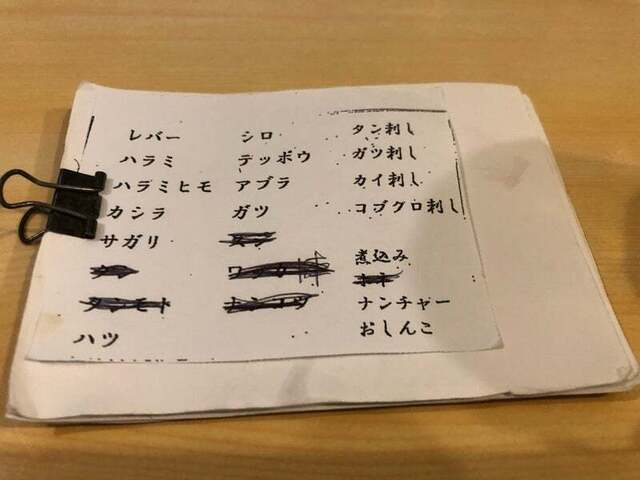 レバー
ハラミ
ハラミヒモ
カシラ
サガリ
タンモト
ハツ
シロ
テッポウ
アブラ
ガツ
タン刺し
ガツ刺し
カイ刺し
コブクロ刺し
煮込み
ナンチャー
おしんこ